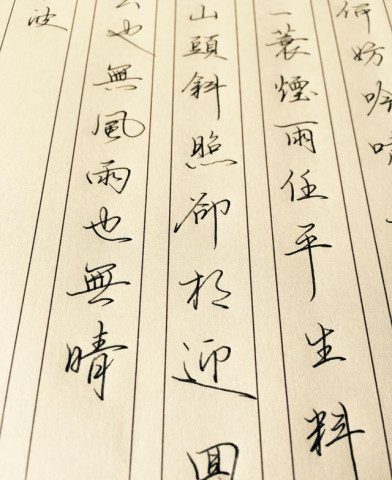 何妨吟
一蓑煙雨任平生料
山頭斜照卻相迎
也無風雨也無晴
波